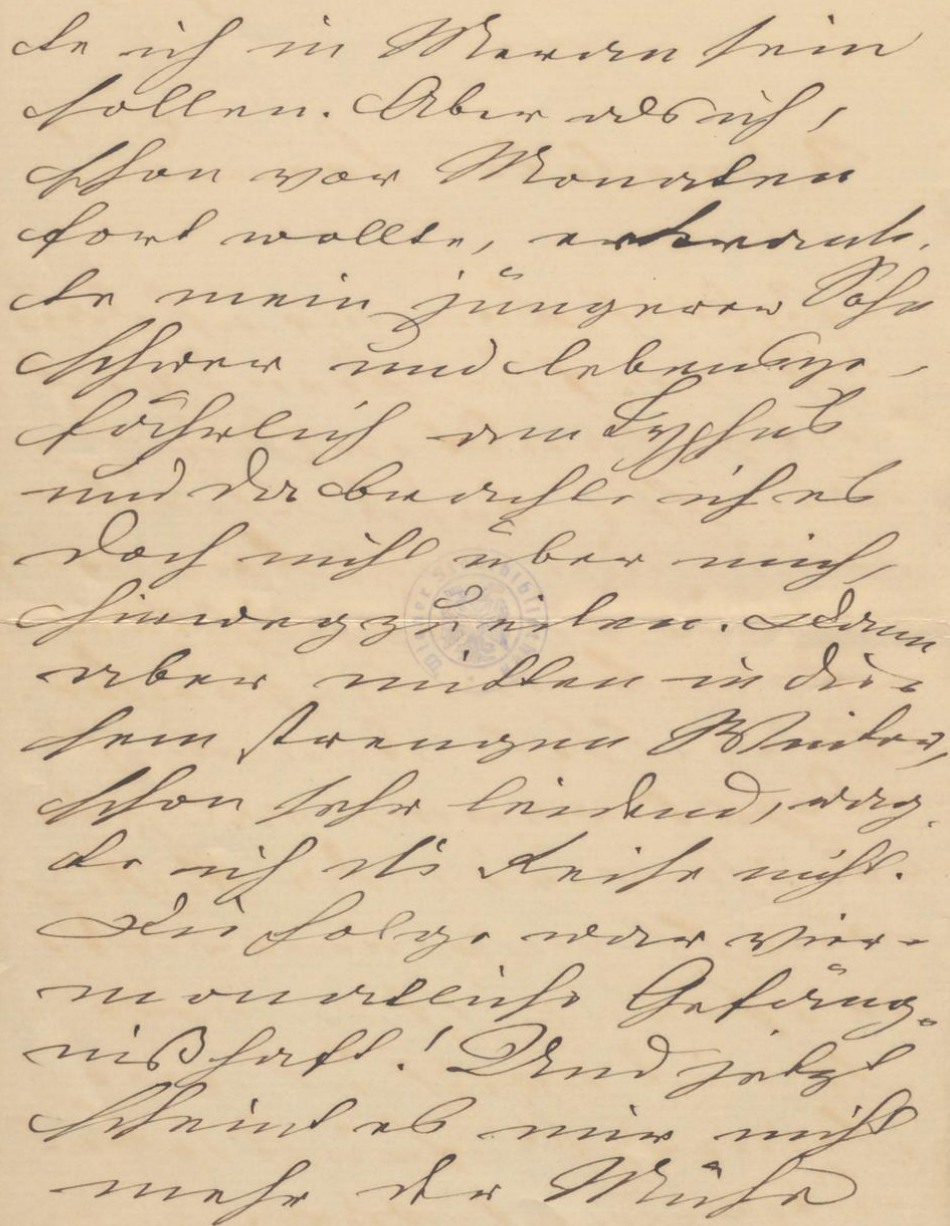 te ich in Meran sein
sollen. Aber als ich,
schon vor Monaten
fort wollte, erkrank-
te mein jüngerer Sohn
schwer und lebensge-
fährlich am Typhus
und da brachte ich es
doch nicht über mich,
hinwegzueilen. Dann
aber mitten in die-
sem strengen Winter,
schon sehr leidend, wag-
te ich die Reise nicht.
Die Folge war vier-
monatliche Gefäng-
nißhaft! Und jetzt
scheint es mir nicht
mehr der Mühe